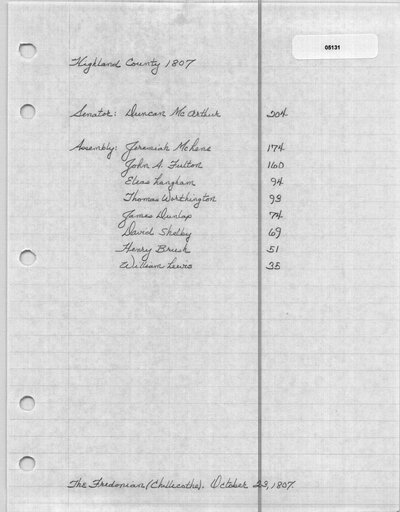 05131
Highland County 1807
Senator: Duncan McArthur 204
Assembly: Jeremiah McLene 174
John A. Fulton 160
Elias Langham 94
Thomas Worthington 93
James Dunlap 74
David Shelby 69
Henry Brush 51
William Lewis 35
The Fredonian (Chillicothe). October 23, 1807.